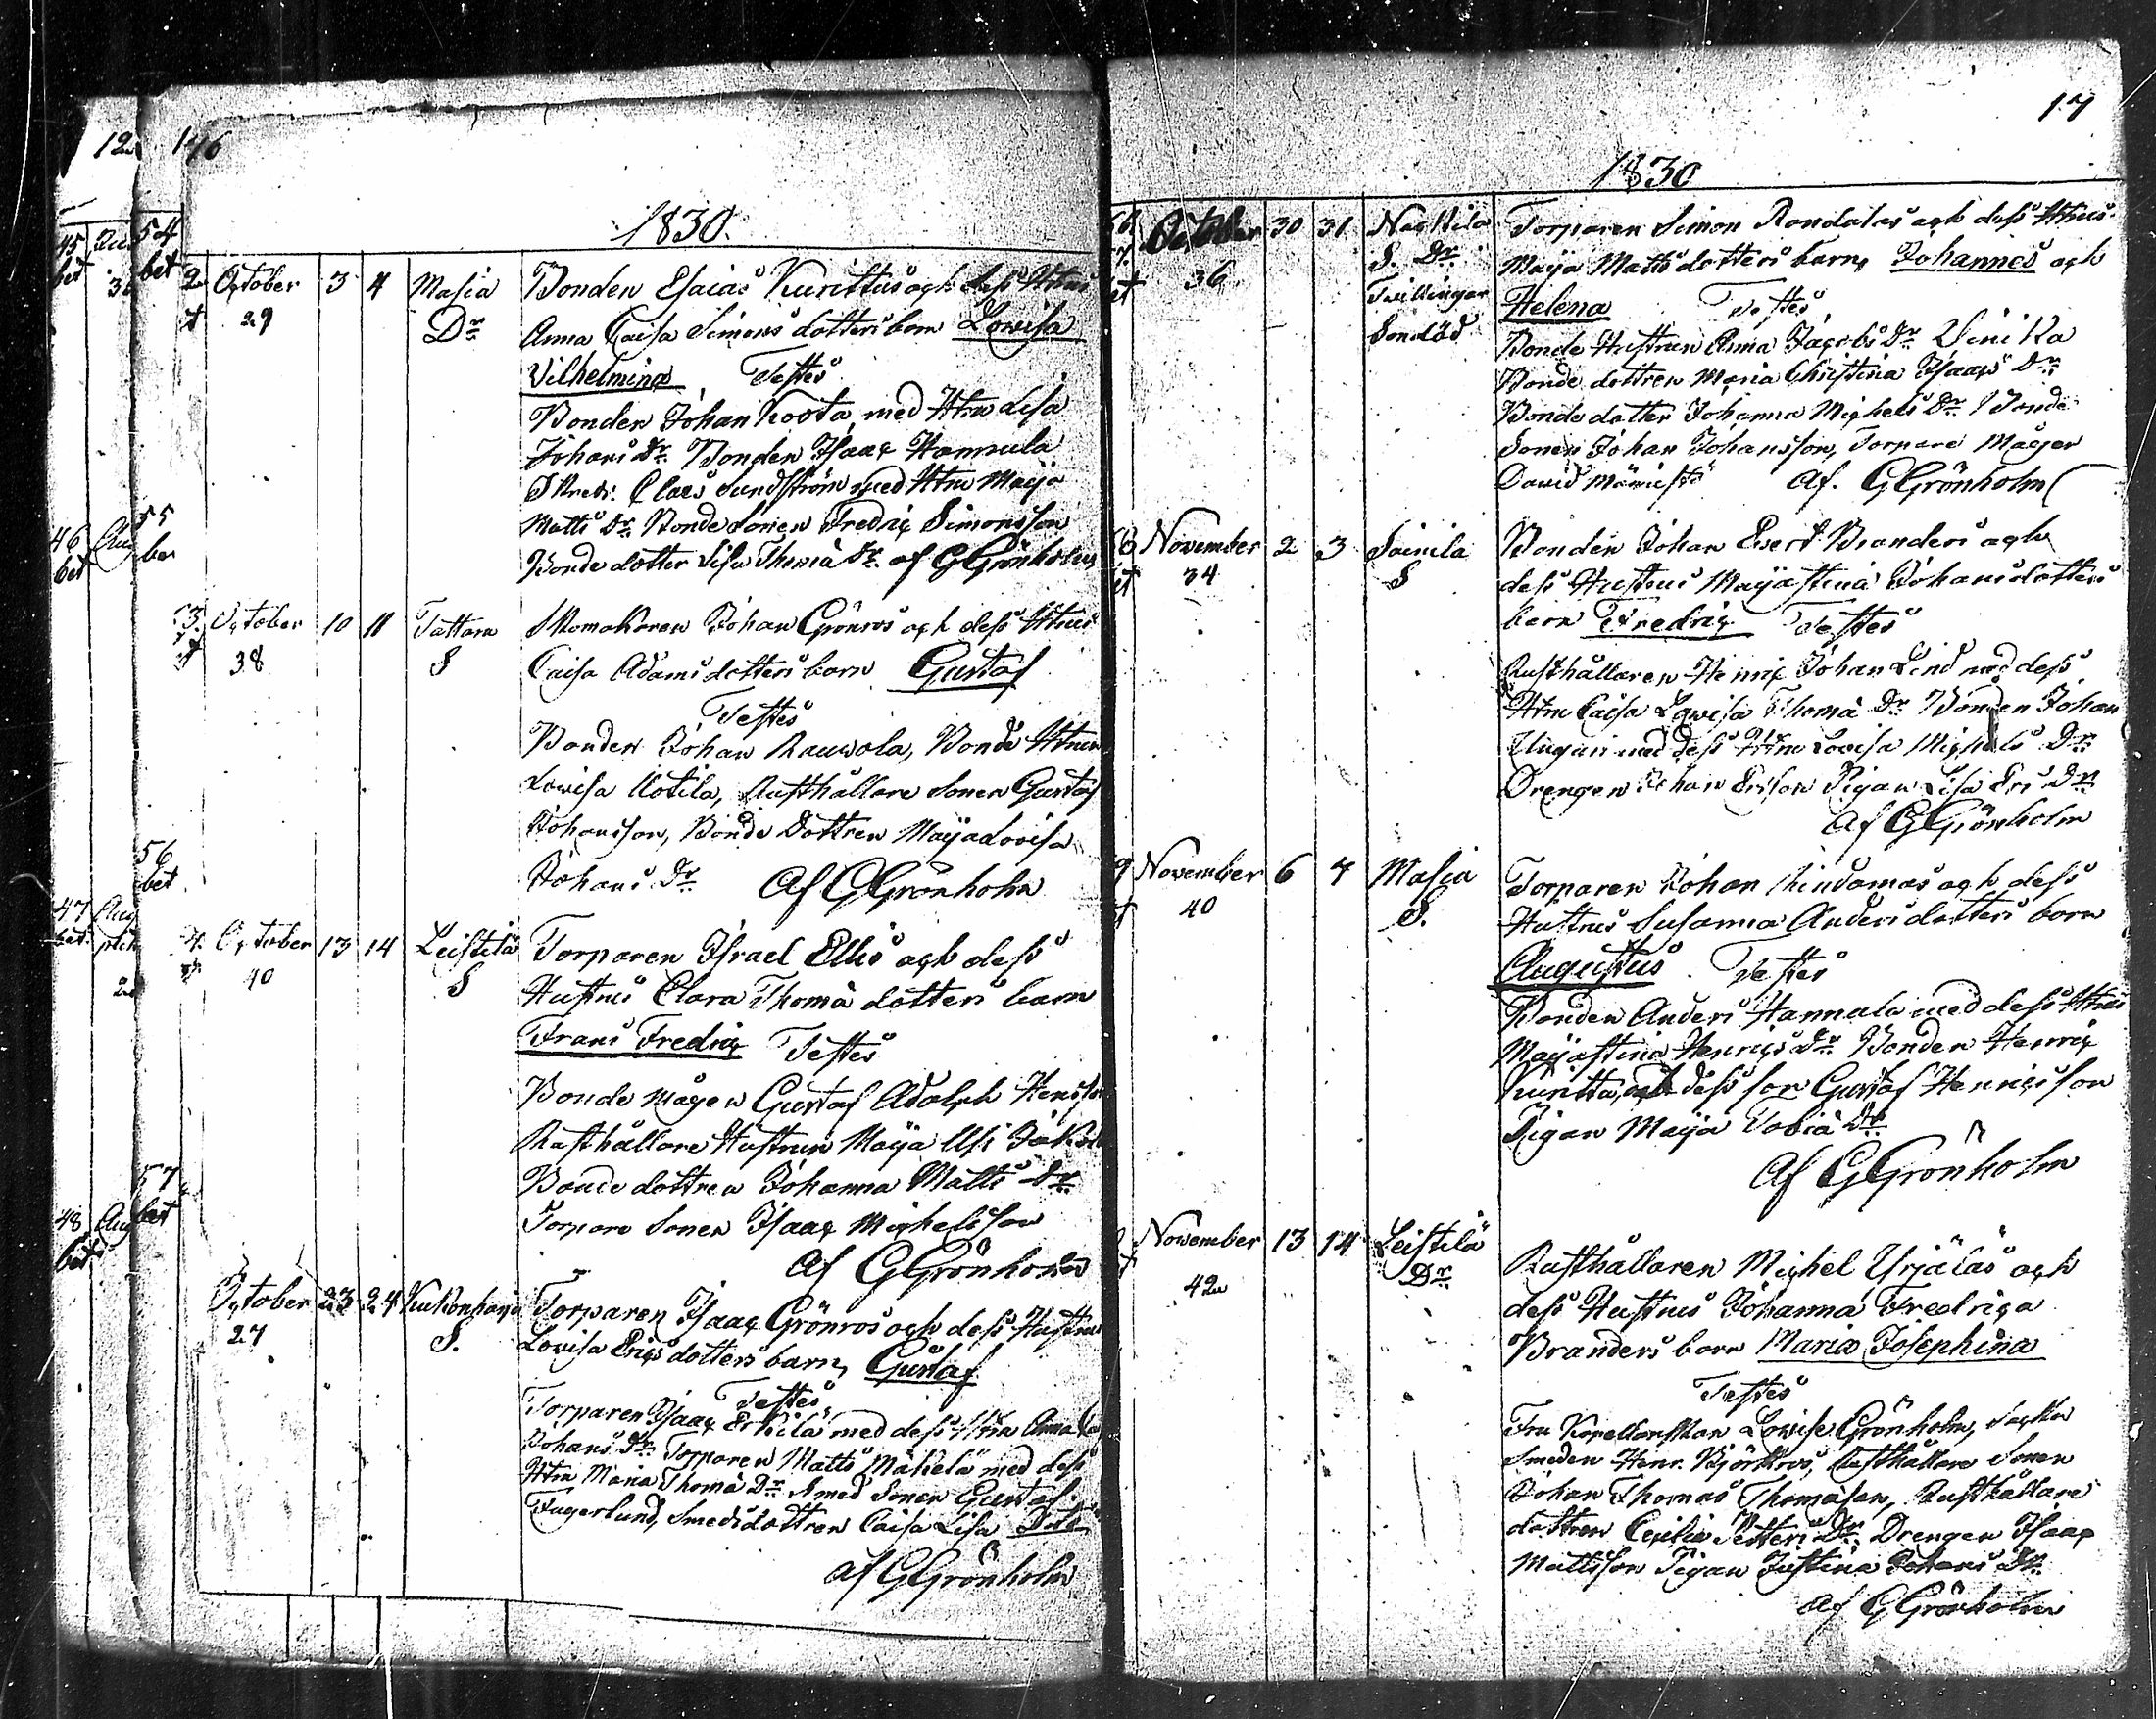 12
176
1830.
45
bet
54
bet
2 October 3 4 Masia
29
Dr
Bonden Esaias Kurittus och dess Hstrus
Anna Caisa Simons dotters barn Lowisa
Vilhelmina Testes
Bonden Johan Koota, med Hstru Lisa
Johans Dr Bonden Isaac Hannula
Skredr. Claes Sundström med Hstru Maija
Matts Dr Bonde Sonen Fredric Simonsson
Bonde dotter Lisa Thomæ Dr af G Grönholm
46
bet
55
bet
3 October 10 11 Tattara
38
S
Skomakaren Johan Grönros och dess Hstrus
Caisa Adams dotters barn Gustaf
Testes
Bonden Johan Rauwola, Bonde Hstrun
Lowisa Uotila, Rusthållare Sonen Gustaf
Johansson, Bonde Dottren Maija Lovisa
Johans Dr Af G Grönholm
56
bet
47
bet
4 October 13 14 Leistilä
40
S
Torparen Israel Ellis och dess
Hustrus Clara Thomæ dotters barn
Frans Fredric Testes
Bonde mågen Gustaf Adolph
Rusthållare Hustrun Maija Ulr
Bonde dottren Johanna Matts Dr
Torpare Sonen Isaac Michelsson
af G Grönholm
57
bet
48
bet
October 23 24 Kukonharja
27
S.
Torparen Isaac Grönros och dess Hustrus
Lovisa Erics dotters barn, Gustaf
Testes
Torparen Isaac Erkilä med dess Hstru Anna
Johans Dr Torparen Matts Mäkelä med dess
Hstru Maria Thomæ Dr Smed Sonen Gustaf
Fagerlund, Smeds dottren Caisa Lisa
af G Grönholm
17
1830
October 30 31 Nasttila
36
S. Dr
Twillingar
Torparen Simon Rondalas och dess Hstrus
Maija Matts dotters barn, Johannes och
Helena Testes
Bonde Hustrun Anna Jacobs Dr
Bonde dottren Maria Christina Isaacs Dr
Bonde dotter Johanna Michels Dr Bonde
Sonen Johan Johansson, Torpare Mågen
David Af. G Grönholm
November 2 3 Soinila
34
S
Bonden Johan Evert Branders och
dess Hustrus Maija Stina Johans dotters
barn Fredric Testes
Rusthållaren Henric Johan Lind med dess
Hstru Caisa Lowisa Thomæ Dr Bonden Johan
med dess Hstru Lovisa Michels Dr
Drengen Johan Ersson Pigan Lisa Ers Dr
af G Grönholm
November 6 7 Masia
40
S.
Torparen Johan Rindamas och dess
Hustrus Susanna Anders dotters barn
Augustus Testes
Bonden Anders Hannula med dess Hstru
Maija Stina Henrics Dr Bonden Henric
Kuritta, och dess son Gustaf Henricsson
Pigan Maija Tobiæ Dr
Af G Grönholm
November 13 14 Leistilä
42
Dr
Rusthållaren Michel Yrjäläs och
dess Hustrus Johanna Fredrica
Branders barn Maria Josephina
Testes
Fru Kapellanskan Lowise Grönholm, Sockne
Smeden Henr. Björkros, Rusthållare Sonen
Johan Thomas Thomæson, Rusthållare
dottren Cecilia Petters Dr Drengen Isaac
Mattsson Pigan Justina Johans Dr
af G Grönholm